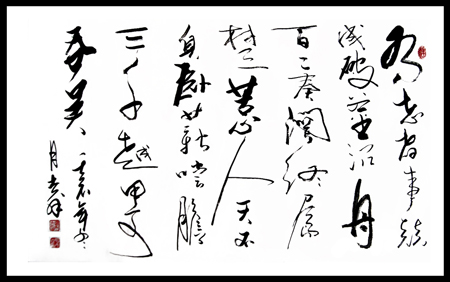 有志者事竟
成破釜沉舟
百二秦關終屬
楚苦心人天不
負卧薪嚐膽
三千越甲可
吞吴